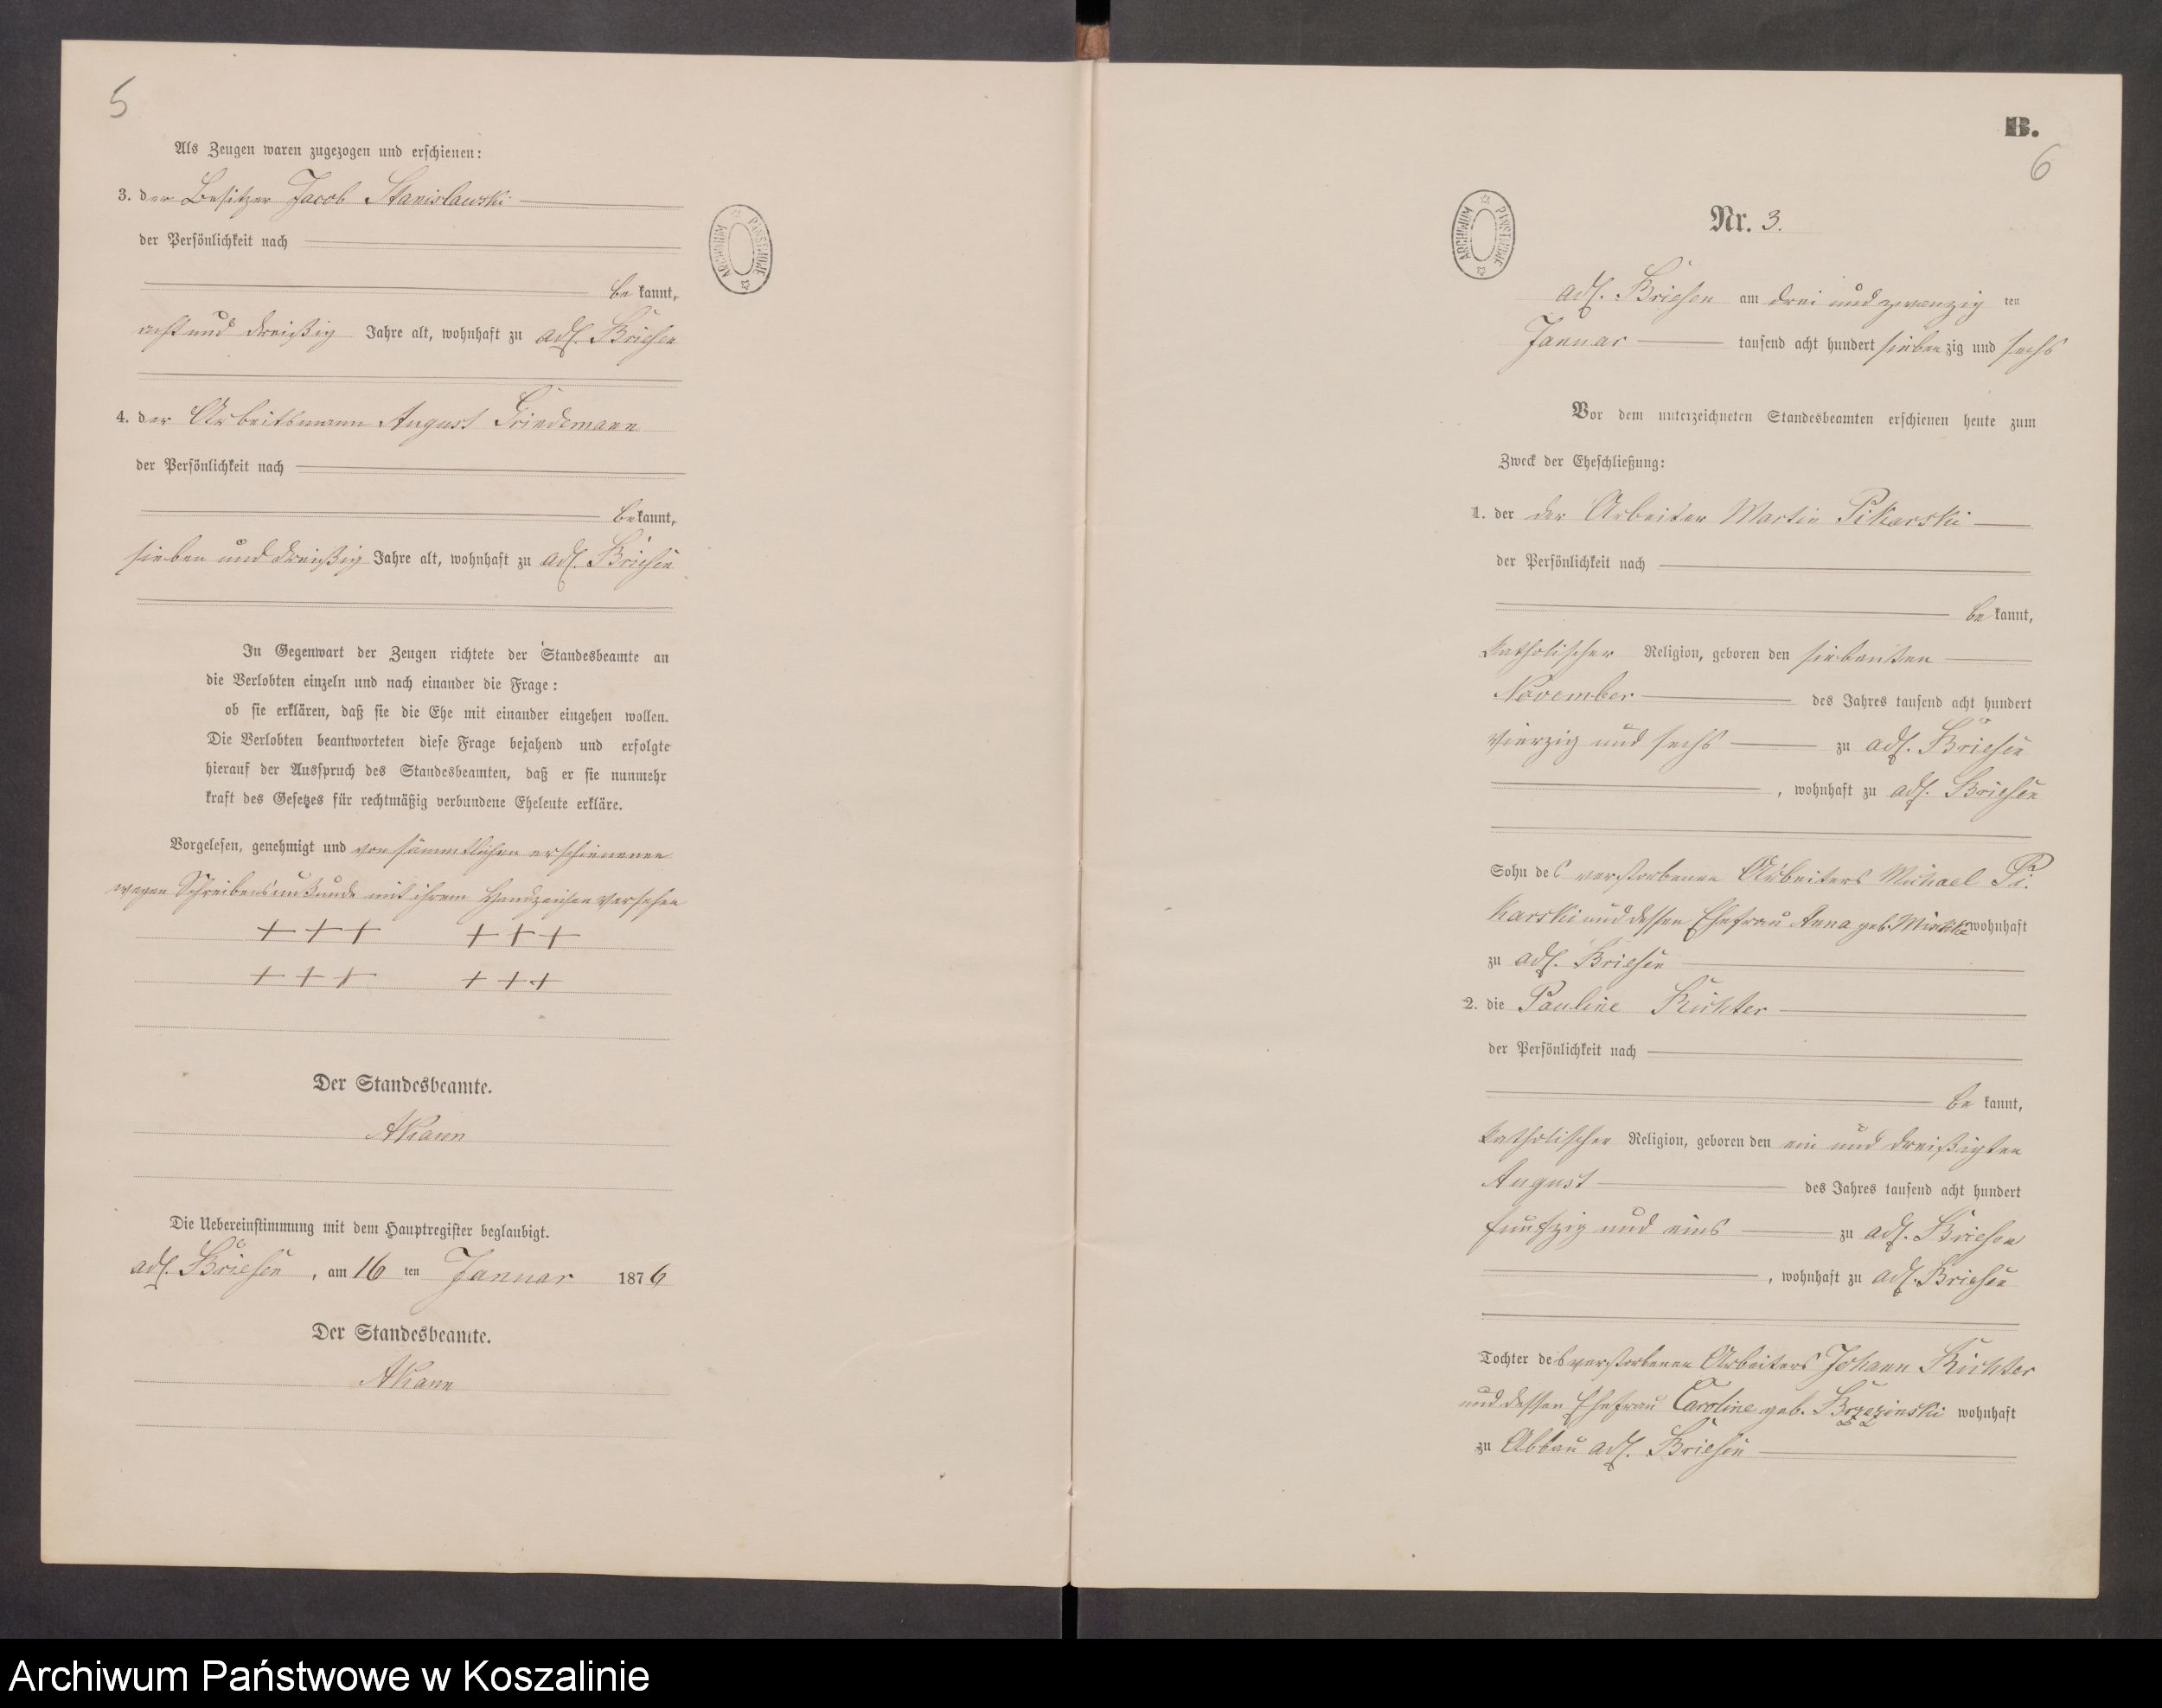 5
Als Zeugen waren zugezogen und erschienen:
3. der Besitzer Jacob Stanislawski
der Persönlichkeit nach
be kannt,
acht und dreißig Jahre alt, wohnhaft zu adl. Briesen
4. der Arbeitsmann August Friedemann
der Persönlichkeit nach
bekannt,
sieben und dreißig Jahre alt, wohnhaft zu adl. Briesen
In Gegenwart der Zeugen richtete der Standesbeamte an
die Verlobten einzeln und nach einander die Frage:
ob sie erklären, daß sie die Ehe mit einander eingehen wollen.
Die Verlobten beantworteten diese Frage bejahend und erfolgte
hierauf der Ausspruch des Standesbeamten, daß er sie nunmehr
kraft des Gesetzes für rechtmäßig verbundene Eheleute erkläre.
Vorgelesen, genehmigt und von sämmtlichen erschienenen
wegen Schreibensunkunde mit ihrem Handzeichen versehen
+++ +++
+++ +++
Der Standesbeamte.
Die Uebereinstimmung mit dem Hauptregister beglaubigt.
adl. Briesen, am 16 ten Januar 1876
Der Standesbeamte.
ARCHIWUM PAŃSTWOWE
B.
6
ARCHIWUM PAŃSTWOWE
Nr. 3.
adl. Briesen am drei und zwanzig ten
Januar tausend acht hundert siebenzig und sechs
Vor dem unterzeichneten Standesbeamten erschienen heute zum
Zweck der Eheschließung:
1. der der Arbeiter Martin Pikarski
der Persönlichkeit nach
be kannt,
katholischer Religion, geboren den siebenten
November des Jahres tausend acht hundert
vierzig und sechs zu adl. Briesen
, wohnhaft zu adl. Briesen
Sohn des verstorbenen Arbeiters Michael Pi-
karski und dessen Ehefrau Anna geb. wohnhaft
zu adl. Briesen
2. die Pauline Richter
der Persönlichkeit nach
be kannt,
katholischer Religion, geboren den ein und dreißigten
August des Jahres tausend acht hundert
funfzig und eins zu adl. Briesen
, wohnhaft zu adl. Briesen
Tochter des verstorbenen Arbeiters Johann Richter
und dessen Ehefrau Caroline geb. Brzezinski wohnhaft
zu Abbau adl. Briesen
Archiwum Państwowe w Koszalinie